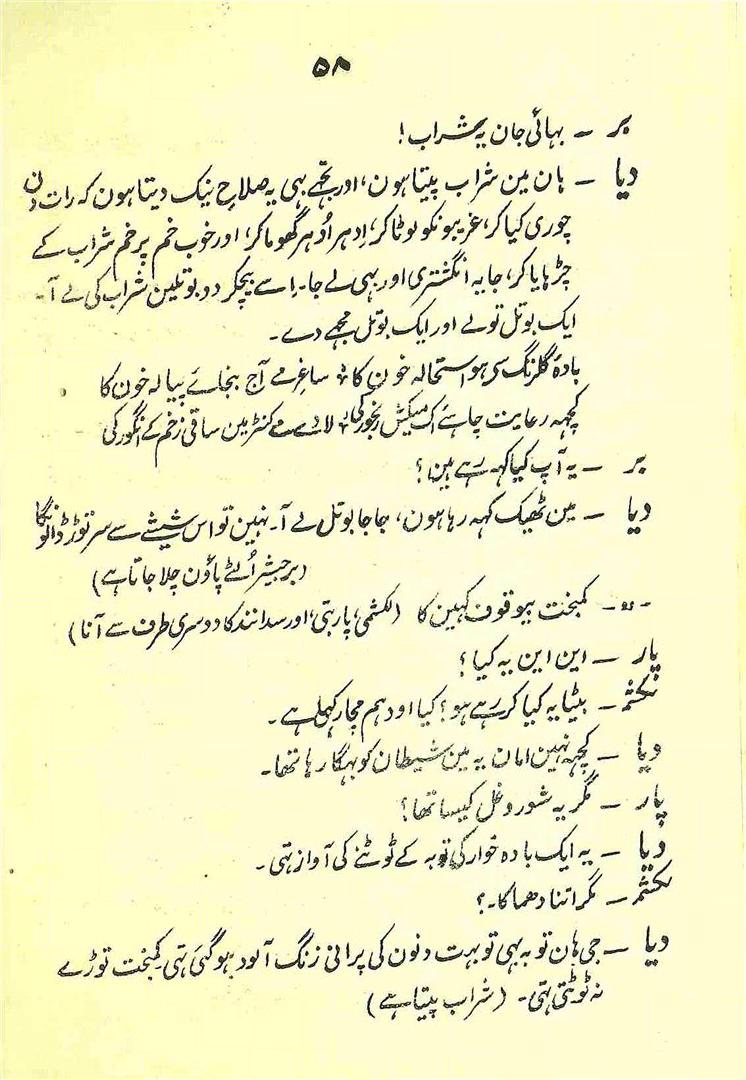 ۵۸
بر – بہائی جان یہ شراب!
دیا – ہان مین شراب پیتا ہون، اور تجھے بہی یہ صلاح نیک دیتا ہون کہ رات دن
چوری کیا کر، غریبونکو لوٹا کر، اِدہر اُدہر گھوما کر، اور خوب خم پر خم شراب کے
چڑہایا کر، جا یہ انگشتری اور بہی لے جا۔ اِسے بیچکر دو بوتلین شراب کی لے آ۔
ایک بوتل تو لے اور ایک بوتل مجھے دے۔
بادۂ گلرنگ سی ہو استحالہ خون کا ؛ ساغر مے آج بنجائے پیالہ خون کا
کچہہ رعایت چاہئے اک میکش رنجور کی ؛ لادے مے کنٹر مین ساقی زخم کے انگور کی
بر – یہ آپ کیا کہہ رہے ہین؟
دیا – مین ٹھیک کہہ رہا ہون، جا جا بوتل لے آ۔ نہین تو اس شیشے سے سر توڑ ڈالونگا
(برجیشر اُلٹے پاؤن چلا جاتا ہے)
-"- کمبخت بیوقوف کہین کا (لکشمی، پاربتی، اور سدانند کا دوسری طرف سے آنا)
پار – این این یہ کیا؟
لکشم – بیٹا یہ کیا کر رہے ہو؟ کیا اودہم مچا رکھی ہے۔
دیا – کچہہ نہین امان یہ مین شیطان کو بہگا رہا تھا۔
پار – مگر یہ شور و غل کیسا تھا؟
دیا – یہ ایک بادہ خوار کی توبہ کے ٹوٹنے کی آواز تہی۔
لکشم – مگر اتنا دھماکا۔؟
دیا – جی ہان توبہ بہی تو بہت دنون کی پرانی زنگ آلود ہو گئی تہی کمبخت توڑے
نہ ٹوٹتی تہی۔ (شراب پیتا ہے)